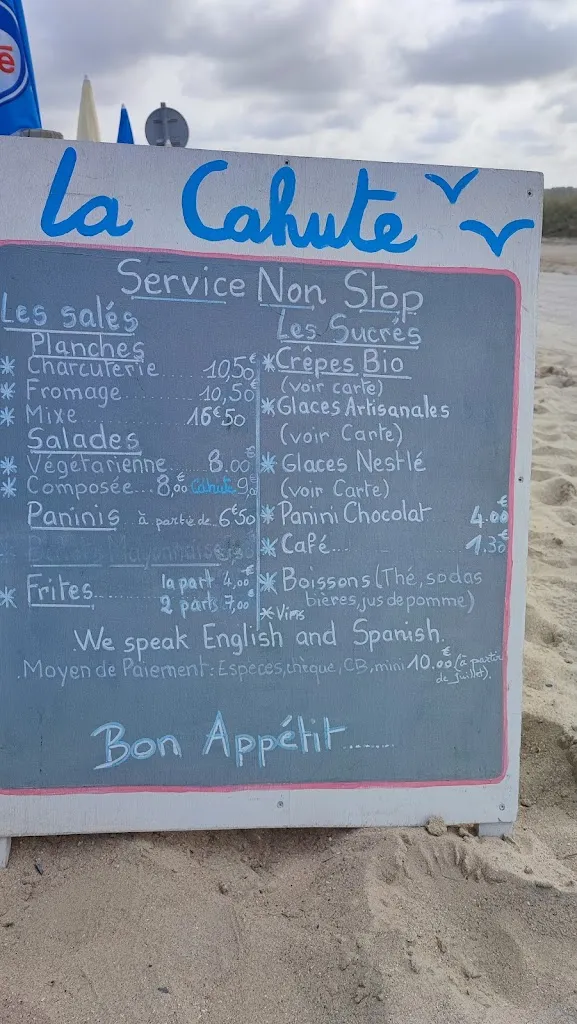 é
la Cahute
Service Non Stop
Les salés
Planches
* Charcuterie 10,50€
* Fromage 10,50
* Mixe 16€50
Salades
* Végétarienne 8.00
* Composée... 8,00 Cahute 9,0
Paninis à partie de 6€50
Mayonnaise
* Frites la part 4,00€
2 parts 7,00
Les Sucrés
* Crêpes Bio
(voir carte)
* Glaces Artisanales
(voir Carte)
* Glaces Nestlé
(voir Carte)
* Panini Chocolat 4.00€
* Café... 1.30€
* Boissons (Thé, sodas
bières, jus de pomme)
* Vins
We speak English and Spanish.
.Moyen de Paiement : Espèces, chèque, CB, mini 10.00€ (à partir
de juillet).
Bon Appétit......